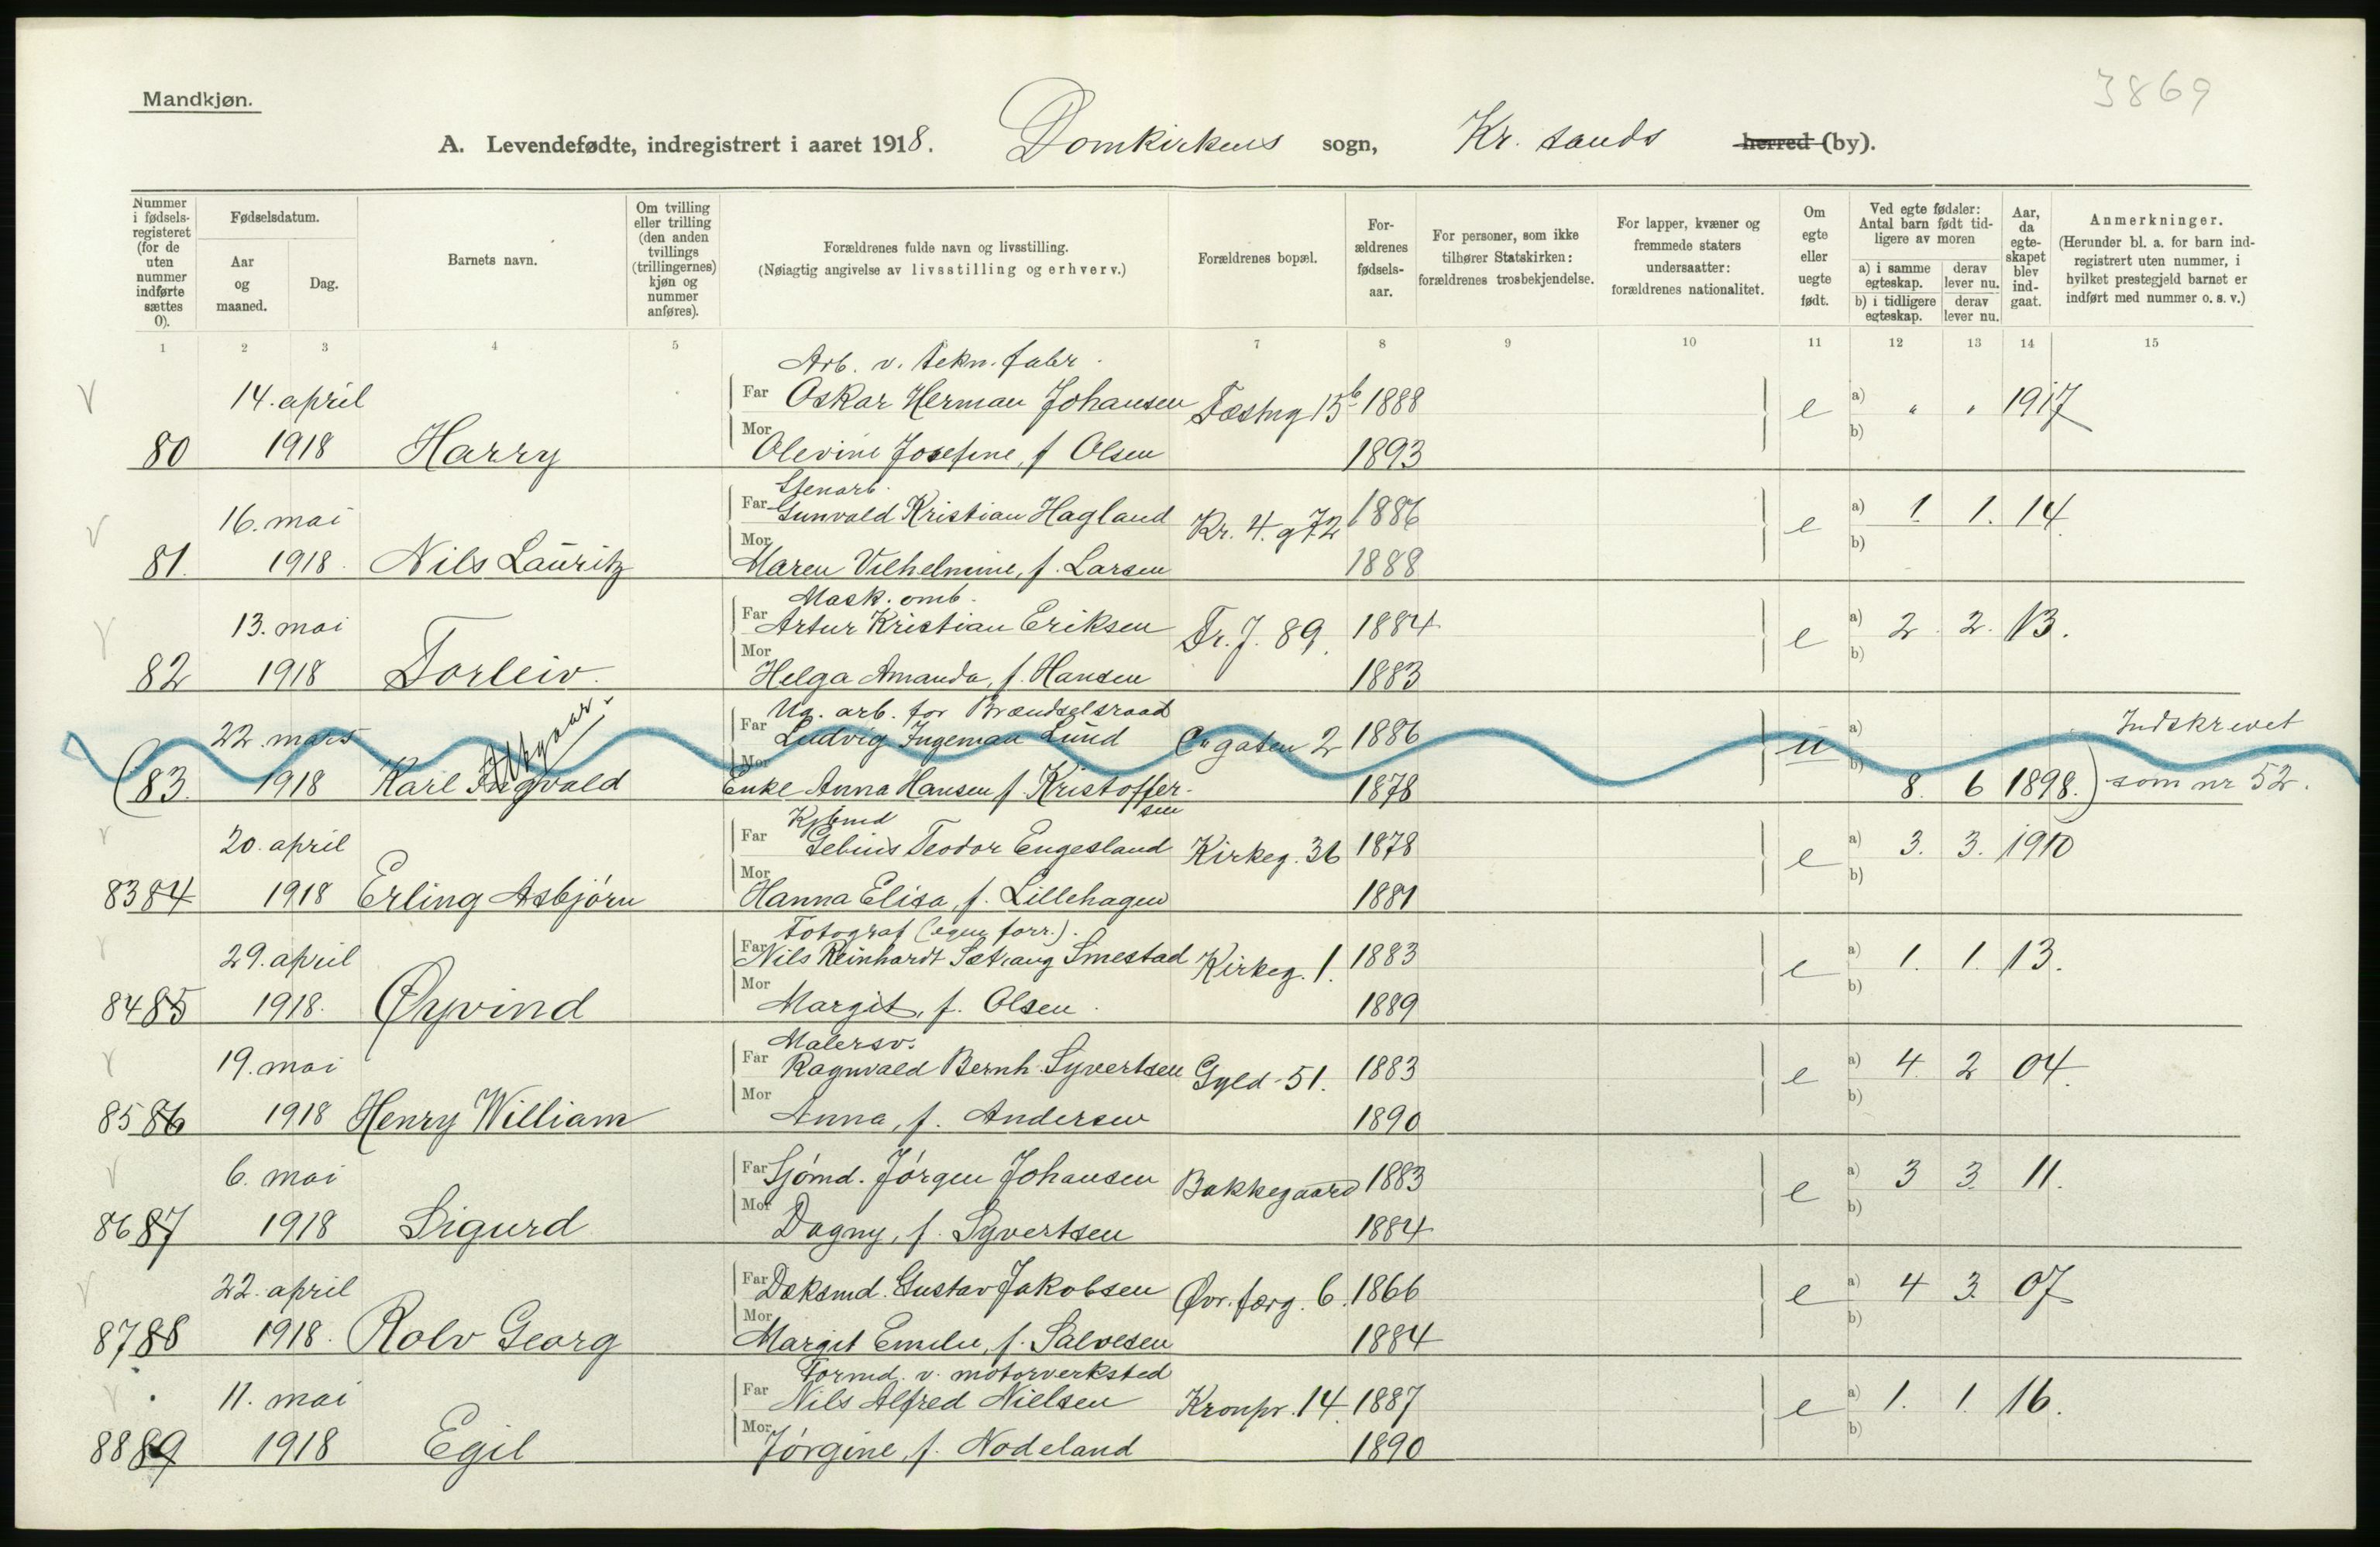 3869
Mandkjøn.
A. Levendefødte, indregistrert i aaret 1918. Domkirkens sogn, Kr. sands herred (by).
Nummer i fødselsregisteret (for de uten nummer indførte sættes 0).
Fødselsdatum.
Aar og maaned.
Dag.
Barnets navn.
Om tvilling eller trilling (den anden tvillings (trillingernes) kjøn og nummer anføres).
Forældrenes fulde navn og livsstilling.
(Nøiagtig angivelse av livsstilling og erhverv.)
Forældrenes bopæl.
Forældrenes fødselsaar.
For personer, som ikke tilhører Statskirken: forældrenes trosbekjendelse.
For lapper, kvæner og fremmede staters undersaatter: forældrenes nationalitet.
Om egte eller uegte født.
Ved egte fødsler: Antal barn født tidligere av moren
a) i samme egteskap. derav lever nu.
b) i tidligere egteskap. derav lever nu.
Aar, da egteskapet blev indgaat.
Anmerkninger.
(Herunder bl. a. for barn indregistrert uten nummer, i hvilket prestegjeld barnet er indført med nummer o. s. v.)
1 2 3 4 5 7 8 9 10 11 12 13 14 15
Arb. v. tekn. fabr.
14. april Far Oskar Herman Johansen Fæstng 15b 1888 e a) " " 1917
80 1918 Harry Mor Olevine Josefine, f Olsen 1893 b)
Stenarb.
16. mai Far Gunvald Kristian Hagland Kr. 4. g 72 1886 e a) 1 1. 14
81. 1918. Nils Lauritz Mor Maren Vilhelmine, f. Larsen 1888 b)
Mask. omb.
13. mai Far Artur Kristian Eriksen Tr. J. 89. 1884 e a) 2 2. 13.
82 1918 Torleiv. Mor Helga Amanda, f. Hansen 1883 b)
Ug. arb. for Brændselsraad
22. mars Far Ludvig Ingeman Lund gaten 2 1886 u a) Indskrevet
(83. 1918 Karl Ingvald Utgaar. Mor Enke Anna Hansen f. Kristoffersen 1878 b) 8. 6 1898.) som nr 52.
Kjbmd
20. april Far Gebius Teodor Engesland Kirkeg. 36 1878 e a) 3. 3. 1910
83 84 1918 Erling Asbjørn Mor Hanna Elisa, f. Lillehagen 1881 b)
Fotograf (egen forr.).
29. april Far Nils Reinhardt Sætrang Smestad Kirkeg. 1. 1883 e a) 1. 1. 13.
84 85 1918. Øyvind Mor Margit, f. Olsen. 1889 b)
Malersv.
19. mai Far Ragnvald Bernh. Syvertsen Gyld. 51. 1883 e a) 4 2 04.
85 86 1918 Henry William Mor Anna, f. Andersen 1890 b)
6. mai Far Sjømd. Jørgen Johansen Bakkegaard 1883 e a) 3 3 11.
86 87 1918 Sigurd Mor Dagny, f. Syvertsen 1884 b)
22. april Far Dæksmd. Gustav Jakobsen Øvr. færg. 6. 1866 e a) 4 3 07
87 88 1918. Rolv Georg Mor Margit Emilie, f. Salvesen 1884 b)
Formd. v. motorverksted
11. mai Far Nils Alfred Nielsen Kronpr. 14. 1887 e a) 1. 1. 16.
88 89 1918 Egil Mor Jørgine, f. Nodeland 1890 b)